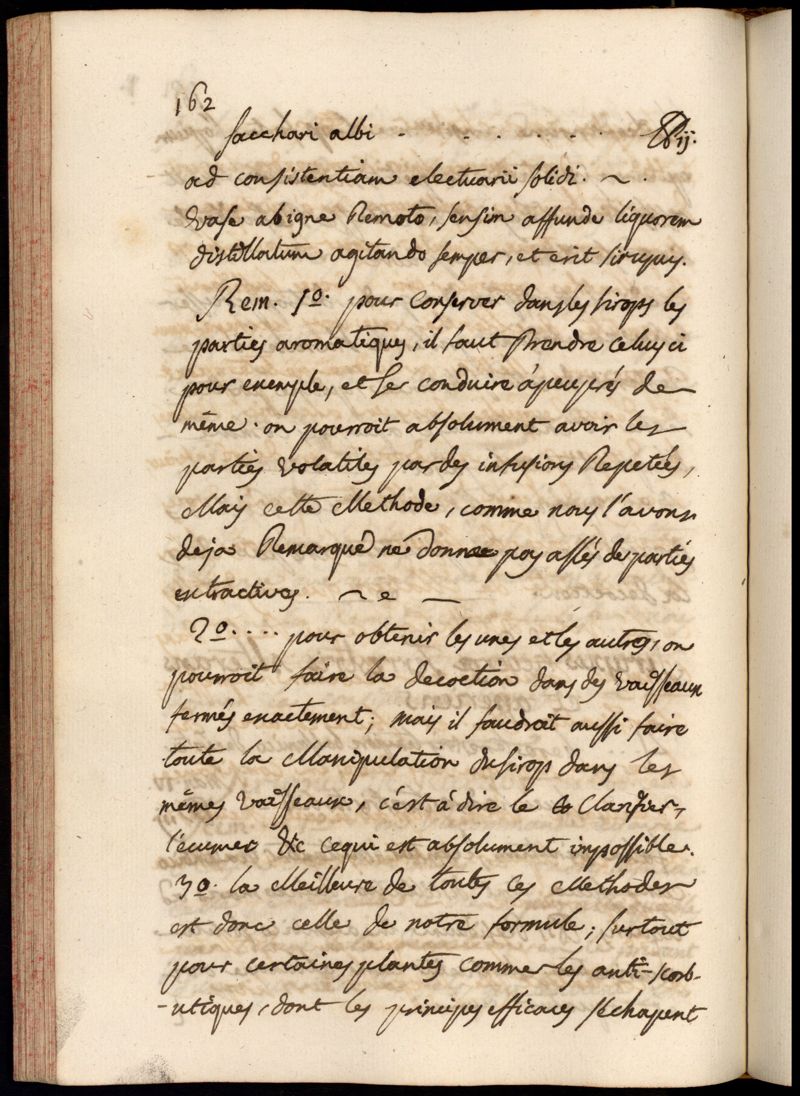 162
sacchari albi - . . . . . . ℔ij.
ad consistentiam electuarii solidi. ~ .
vase ab igne Remoto, sensim affunde liquorem
distillatum agitando semper, et erit sirupus.
Rem. 1o. pour conserver dans les sirops les
parties aromatiques, il faut Prendre celuy ci
pour exemple, et se conduire à peuprés de
même. on pourroit absolument avoir les
parties volatiles par des infusions Repetées,
Mais cette Methode, comme nous l'avons
deja Remarqué ne donne pas assés de parties
extractives. ~ e —
2o. . . . pour obtenir les unes et les autres, on
pourroit faire la decoction dans des vaisseaux
fermés exactement; mais il faudroit aussi faire
toute la Manipulation du sirop dans les
mêmes vaisseaux, c'est à dire le Clarifier,
l'ecumer &c ce qui est absolument impossible.
3o. la Meilleure de toutes ces Methodes
est donc celle de notre formule; surtout
pour certaines plantes comme les anti-scorb-
-utiques, dont les principes efficaces s'échapent